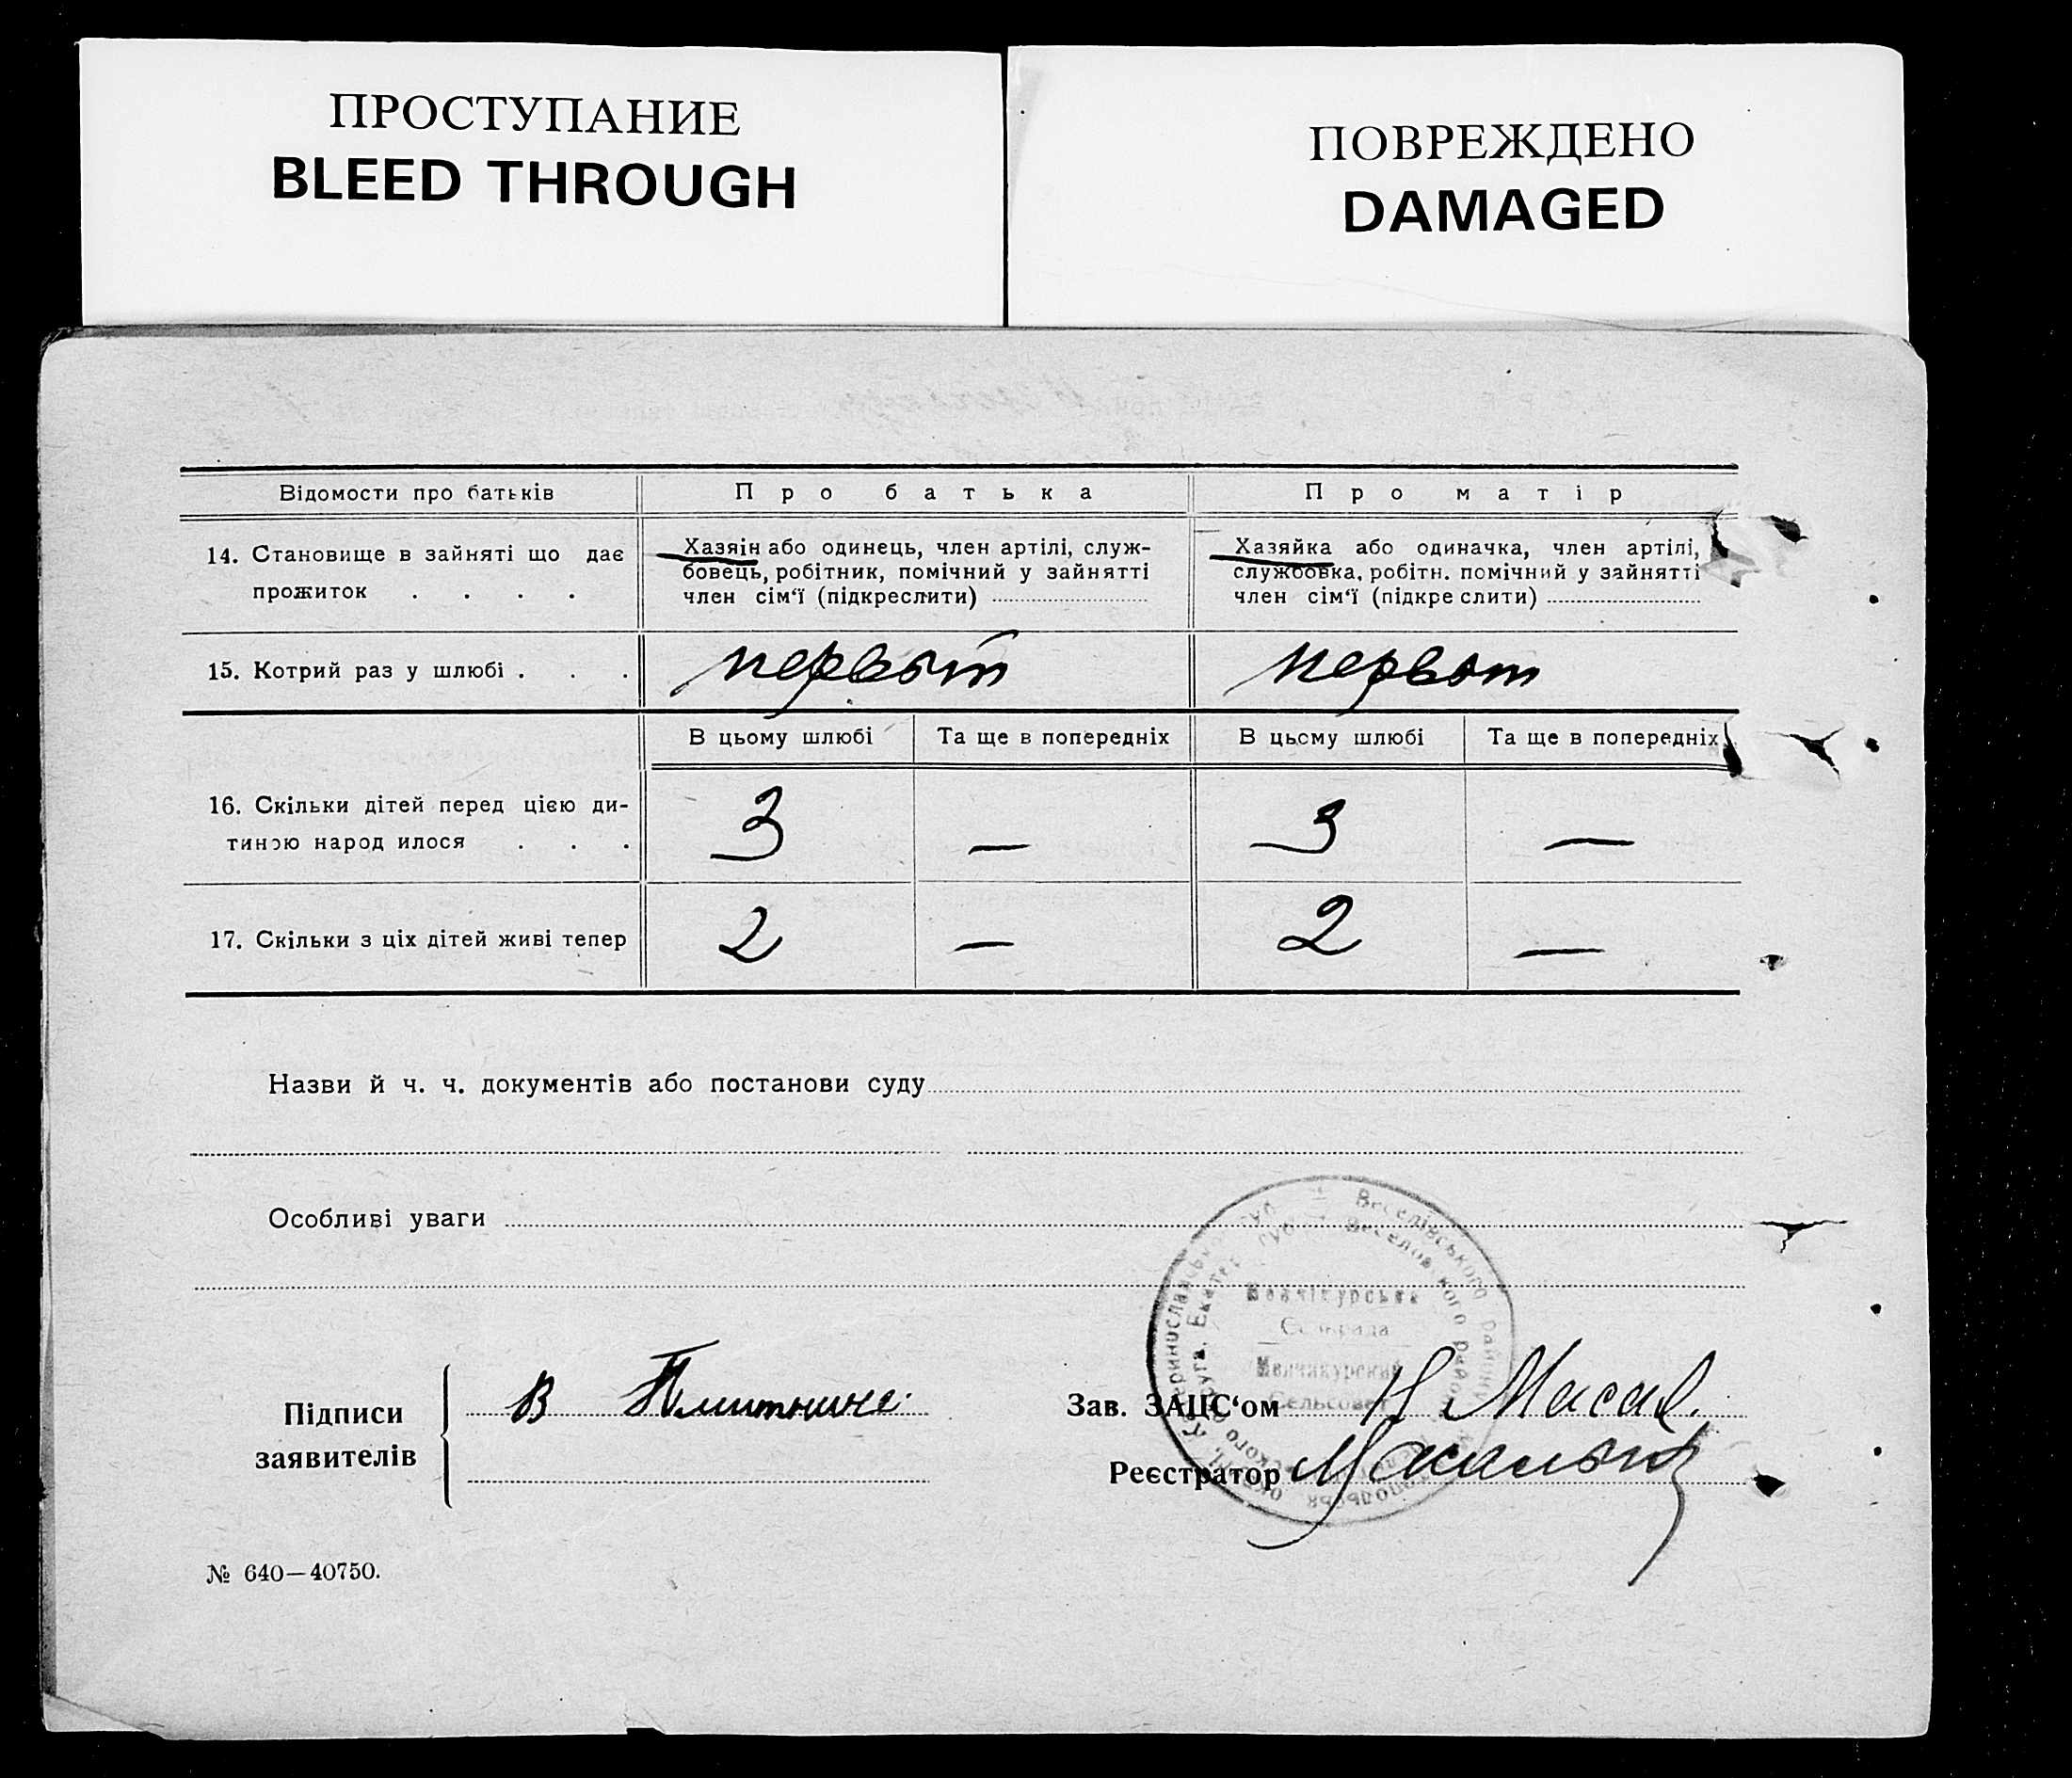 ПРОСТУПАНИЕ
BLEED THROUGH
ПОВРЕЖДЕНО
DAMAGED
Відомости про батьків
Про батька
Про матір
14. Становище в зайняті що дає
прожиток . . . .
Хазяін або одинець, член артілі, служ-
бовець, робітник, помічний у зайнятті
член сім‘ї (підкреслити)
Хазяйка або одиначка, член артілі,
службовка, робітн. помічний у зайнятті
член сім‘ї (підкре слити)
15. Котрий раз у шлюбі . . .
первый
первый
В цьому шлюбі
Та ще в попередніх
В цьому шлюбі
Та ще в попередніх
16. Скільки дітей перед цією ди-
тиною народ илося . . .
3
—
3
—
17. Скільки з ціх дітей живі тепер
2
—
2
—
Назви й ч. ч. документів або постанови суду
Особливі уваги
Веселівського району
Сельрада
Сельсовет
Підписи
заявителів
В
Зав. ЗАЦС‘ом
Реєстратор
№ 640—40750.